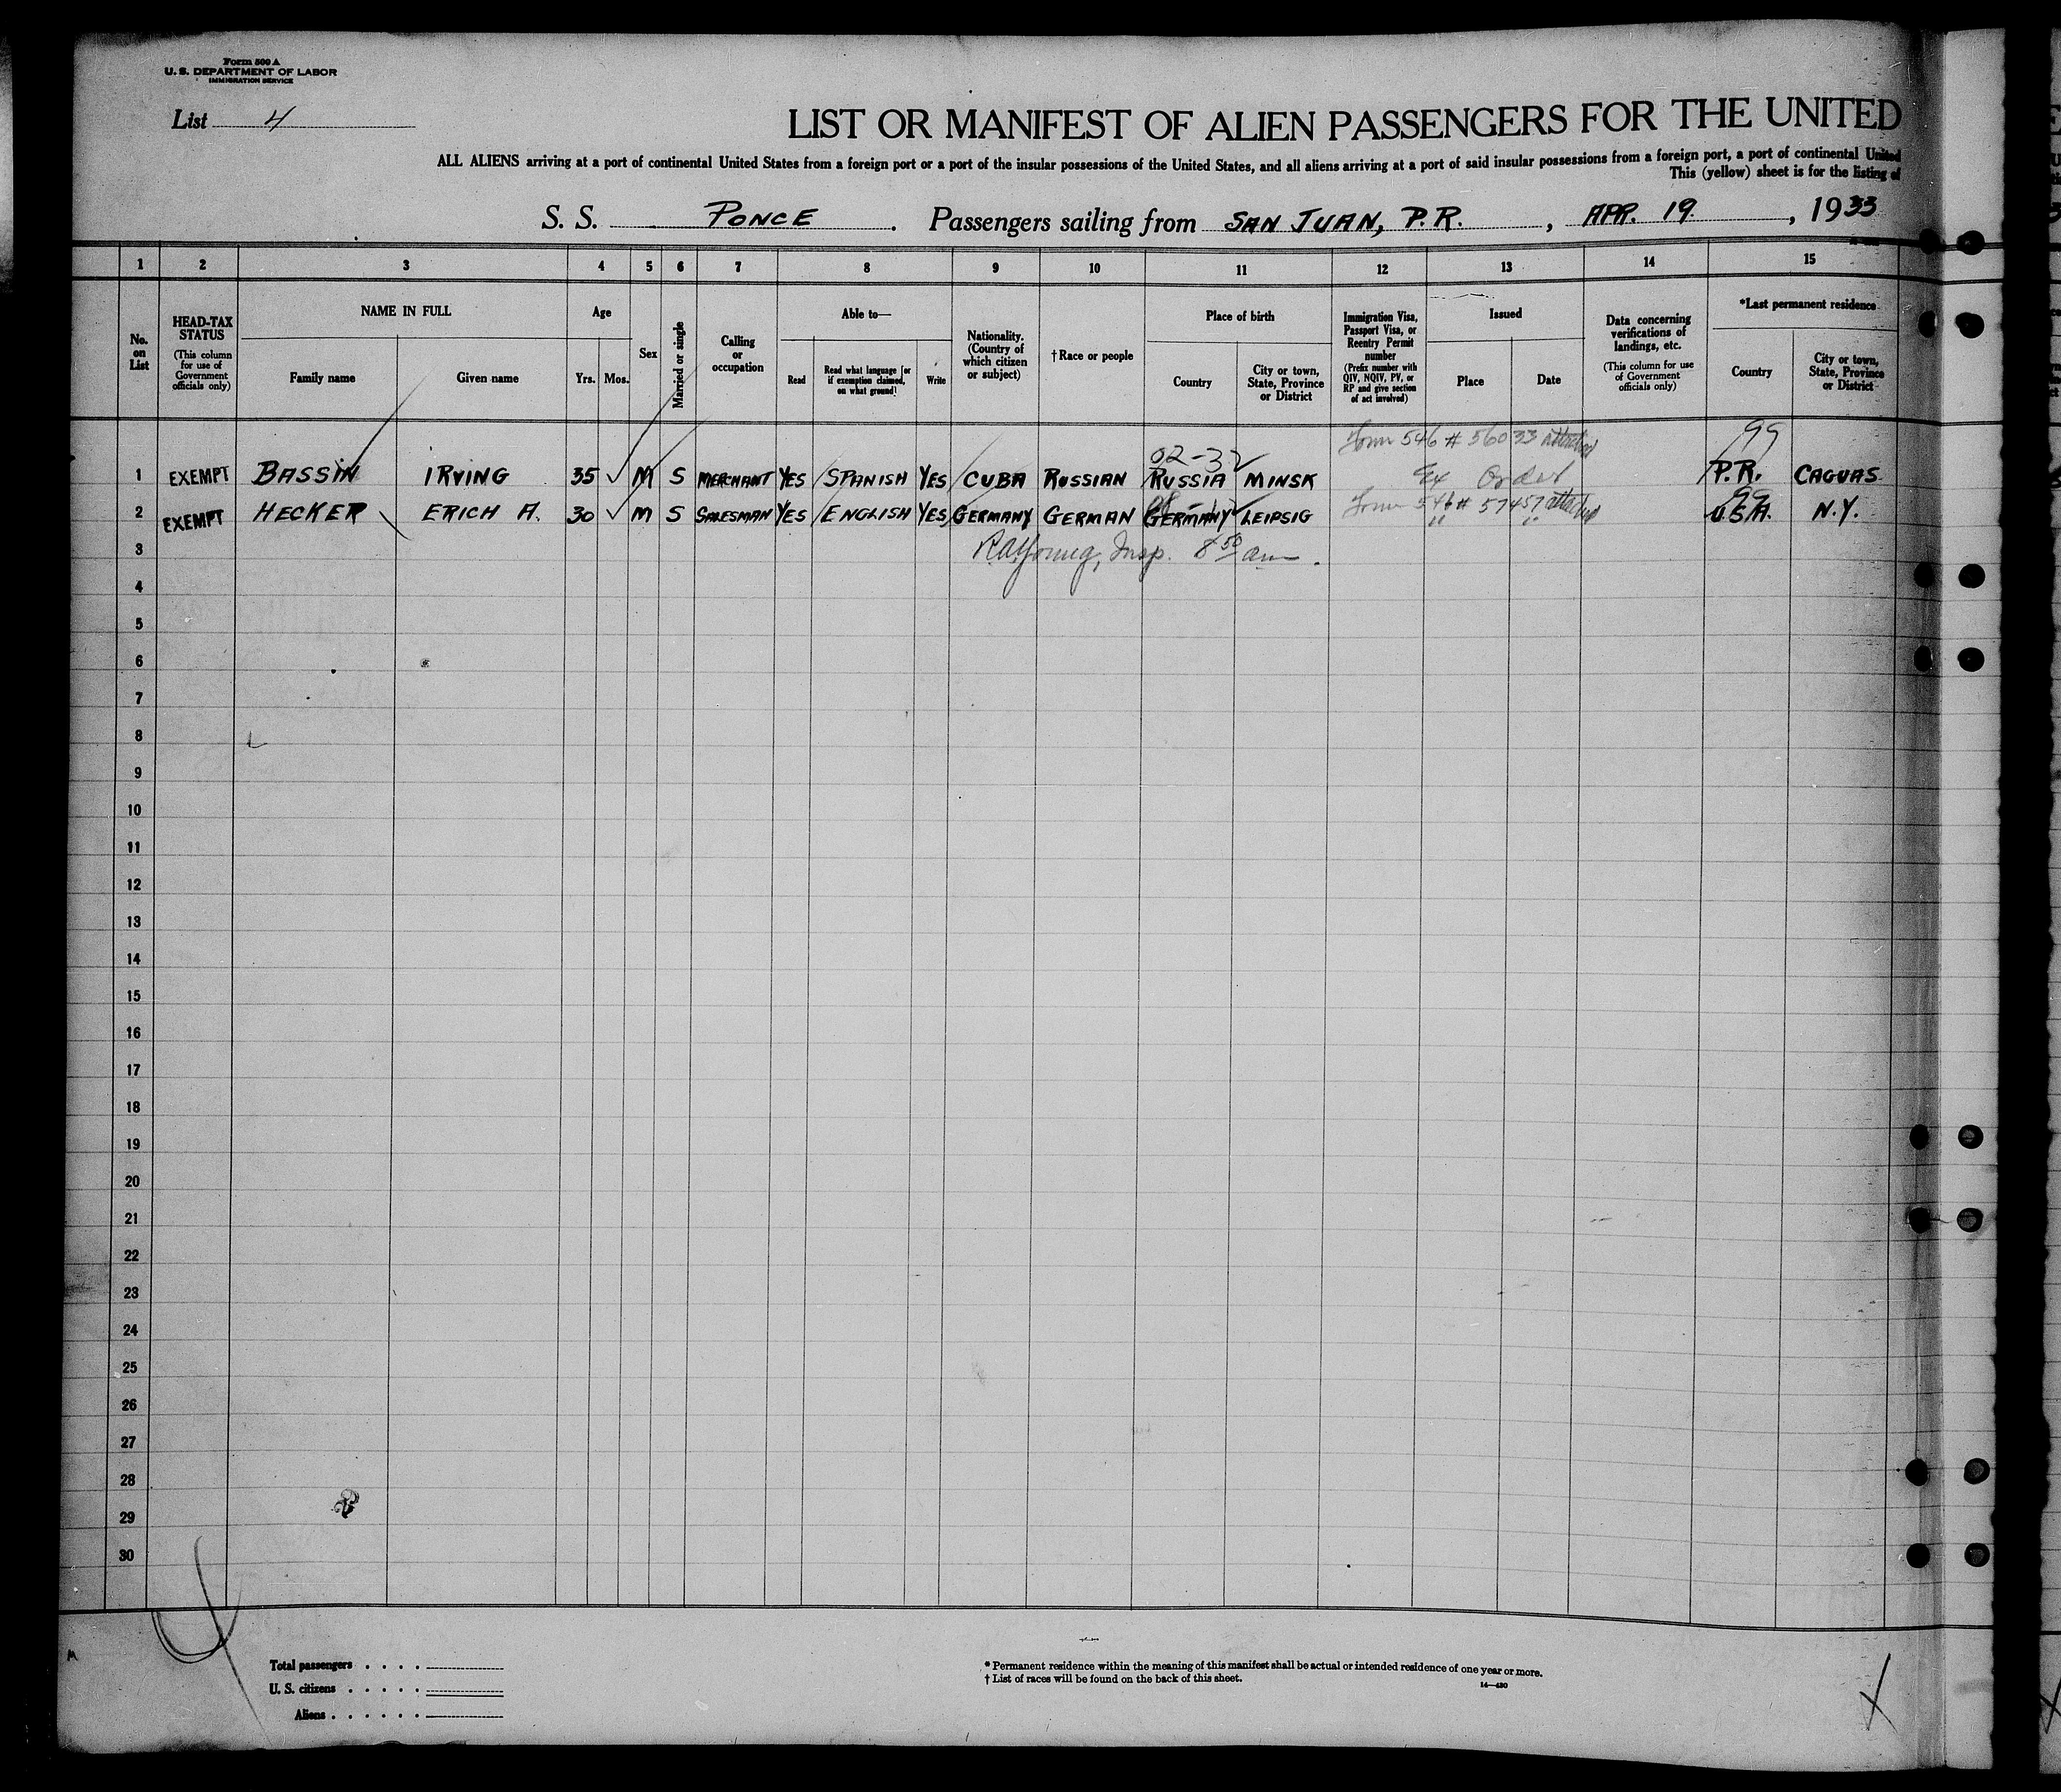 Form 500 A
U. S. DEPARTMENT OF LABOR
IMMIGRATION SERVICE
List 4
LIST OR MANIFEST OF ALIEN PASSENGERS FOR THE UNITED
ALL ALIENS arriving at a port of continental United States from a foreign port or a port of the insular possessions of the United States, and all aliens arriving at a port of said insular possessions from a foreign port, a port of continental United
This (yellow) sheet is for the listing of
S. S. PONCE. Passengers sailing from SAN JUAN, P.R., APR. 19, 1933
1 2 3 4 5 6 7 8 9 10 11 12 13 14 15
No. on List
HEAD-TAX STATUS (This column for use of Government officials only)
NAME IN FULL
Family name Given name
Age
Yrs. Mos.
Sex
Married or single
Calling or occupation
Able to—
Read
Read what language [or if exemption claimed, on what ground]
Write
Nationality. (Country of which citizen or subject)
†Race or people
Place of birth
Country
City or town, State, Province or District
Immigration Visa, Passport Visa, or Reentry Permit number (Prefix number with QIV, NQIV, PV, or RP and give section of act involved)
Issued
Place Date
Data concerning verifications of landings, etc. (This column for use of Government officials only)
*Last permanent residence
Country
City or town, State, Province or District
02-3 Form 546 # 56033 attached 99
1 EXEMPT BASSIN IRVING 35 M S MERCHANT YES SPANISH YES CUBA RUSSIAN RUSSIA MINSK Ex Order P.R. CAGUAS
Form 546 # 57457 attached 99
2 EXEMPT HECKER ERICH A. 30 M S SALESMAN YES ENGLISH YES GERMANY GERMAN GERMANY LEIPSIG " " U.S.A. N.Y.
3 Insp. 8 50 am.
4
5
6
7
8
9
10
11
12
13
14
15
16
17
18
19
20
21
22
23
24
25
26
27
28
29
30
Total passengers
U. S. citizens
Aliens
* Permanent residence within the meaning of this manifest shall be actual or intended residence of one year or more.
† List of races will be found on the back of this sheet.
14—430